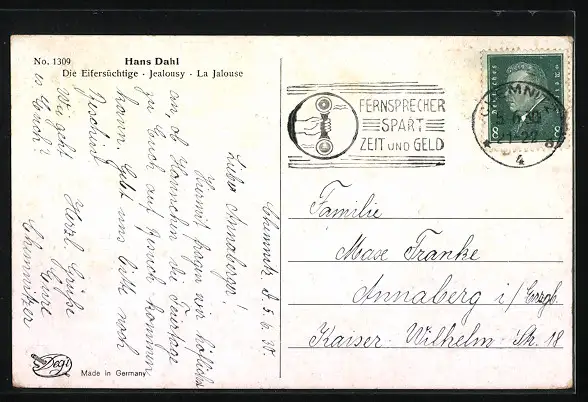 No. 1309
Hans Dahl
Die Eifersüchtige - Jealousy - La Jalouse
Chemnitz, d. 5.6.30.
Liebe Annaberger!
Hiermit fragen wir höflichst
an, ob Hannchen die Feiertage
zu Euch auf Besuch kommen
kann. Gebt uns bitte noch
Bescheid
Wie geht
es Euch?
Herzl. Grüße
Eure
Chemnitzer
Degi
Made in Germany
FERNSPRECHER
SPART
ZEIT UND GELD
CHEMNITZ
4
Deutsches Reich
8
8
Familie
Max Franke
Annaberg i/Erzgb.
Kaiser-Wilhelm-Str. 18